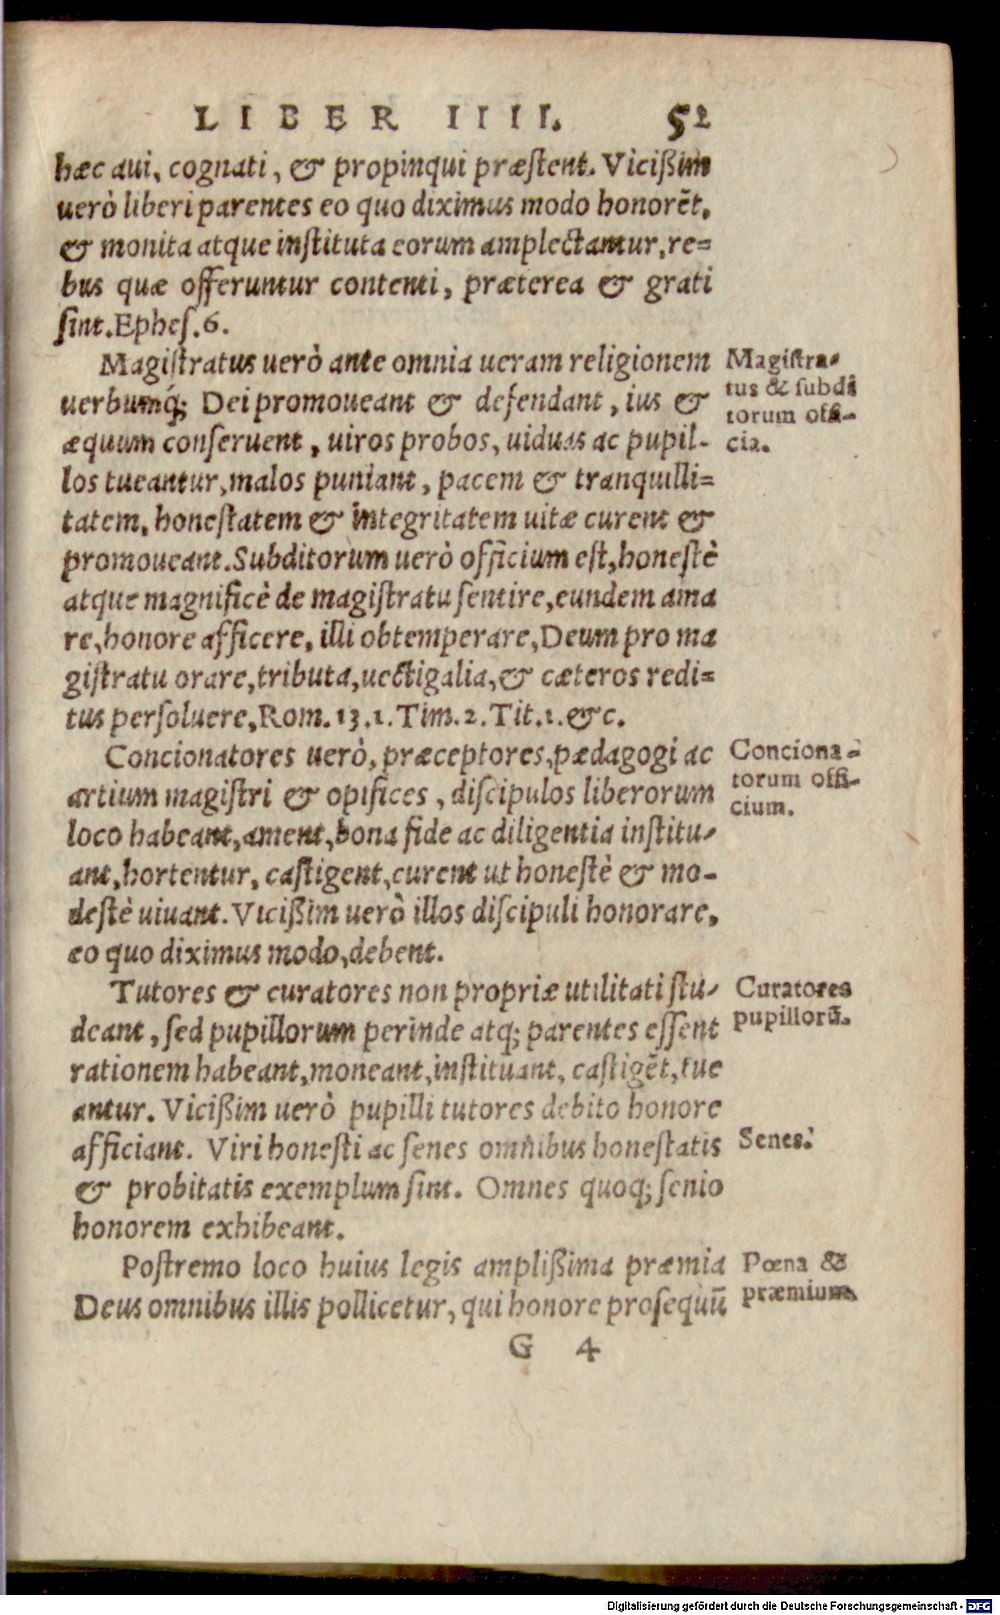 LIBER IIII. 52
hæc aui, cognati, & propinqui præſtent. Vicißim
uerò liberi parentes eo quo diximus modo honorẽt,
& monita atque inſtituta eorum amplectantur, re=
bus quæ offeruntur contenti, præterea & grati
ſint. Epheſ. 6.
Magiſtratus uerò ante omnia ueram religionem
uerbumq́; Dei promoueant & defendant, ius &
æquum conſeruent, uiros probos, uiduas ac pupil-
los tueantur, malos puniant, pacem & tranquilli=
tatem, honeſtatem & integritatem uitæ curent &
promoueant. Subditorum uerò officium eſt, honeſtè
atque magnificè de magiſtratu ſentire, eundem ama
re, honore afficere, illi obtemperare, Deum pro ma
giſtratu orare, tributa, uectigalia, & cæteros redi=
tus perſoluere, Rom. 13. 1. Tim. 2. Tit. 1. &c.
Magiſtra-
tus & ſubdi
torum offi-
cia.
Concionatores uerò, præceptores, pædagogi ac
artium magiſtri & opifices, diſcipulos liberorum
loco habeant, ament, bona fide ac diligentia inſtitu-
ant, hortentur, caſtigent, curent ut honeſtè & mo-
deſtè uiuant. Vicißim uerò illos diſcipuli honorare,
eo quo diximus modo, debent.
Conciona-
torum offi-
cium.
Tutores & curatores non propriæ utilitati ſtu-
deant, ſed pupillorum perinde atq; parentes eſſent
rationem habeant, moneant, inſtituant, caſtigẽt, tue
antur. Vicißim uerò pupilli tutores debito honore
afficiant. Viri honeſti ac ſenes omnibus honeſtatis
& probitatis exemplum ſint. Omnes quoq; ſenio
honorem exhibeant.
Curatores
pupillorũ.
Senes.
Poſtremo loco huius legis amplißima præmia
Deus omnibus illis pollicetur, qui honore proſequũ
Pœna &
præmium.
G 4
Digitalisierung gefördert durch die Deutsche Forschungsgemeinschaft - DFG